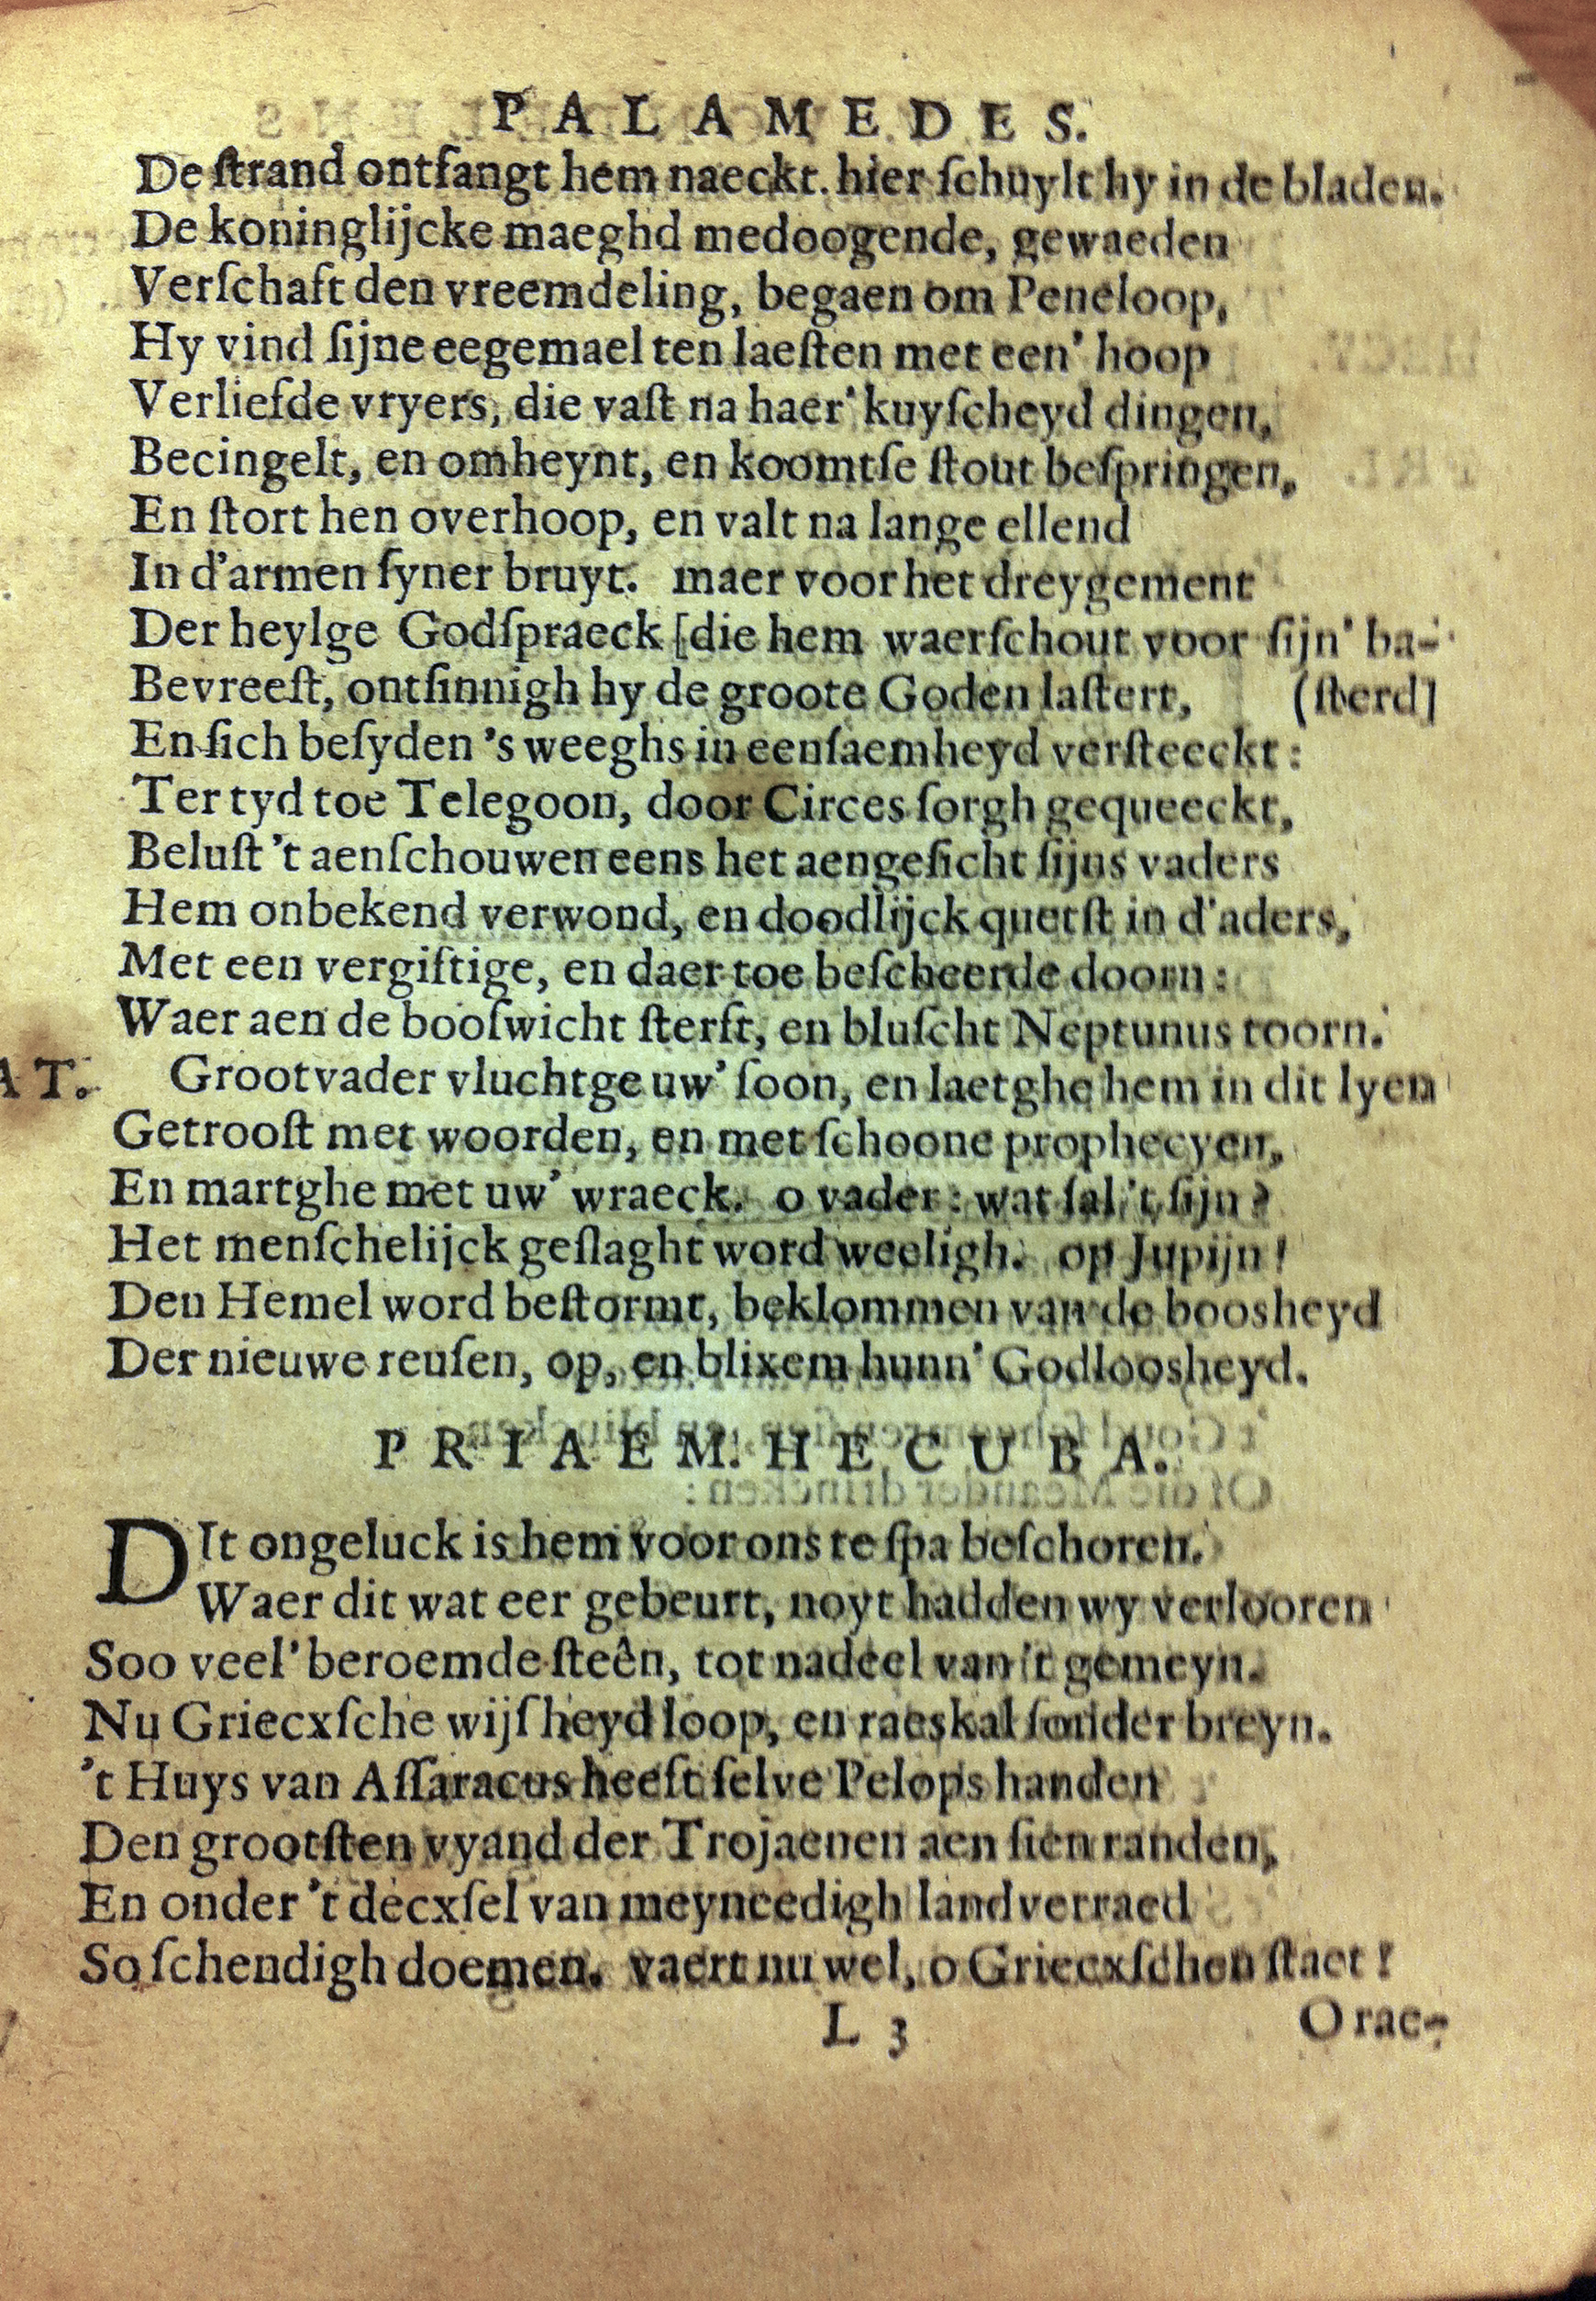 PALAMEDES.
De ſtrand ontfangt hem naeckt. hier ſchuylt hy in de bladen.
De koninglijcke maeghd medoogende, gewaeden
Verſchaft den vreemdeling, begaen om Peneloop,
Hy vind ſijne eegemael ten laeſten met een' hoop
Verliefde vryers, die vaſt na haer' kuyſcheyd dingen,
Becingelt, en omheynt, en koomtſe ſtout beſpringen,
En ſtort hen overhoop, en valt na lange ellend
In d'armen ſyner bruyt. maer voor het dreygement
Der heylge Godſpraeck [die hem waerſchout voor ſijn' ba-
Bevreeſt, ontſinnigh hy de groote Goden laſtert, (ſterd]
En ſich beſyden 's weeghs in eenſaemheyd verſteeckt:
Ter tyd toe Telegoon, door Circes ſorgh gequeeckt,
Beluſt 't aenſchouwen eens het aengeſicht ſijns vaders
Hem onbekend verwond, en doodlijck quetſt in d'aders,
Met een vergiftige, en daer toe beſcheerde doorn:
Waer aen de booſwicht ſterft, en bluſcht Neptunus toorn.
AT. Grootvader vluchtge uw' ſoon, en laetghe hem in dit lyen
Getrooſt met woorden, en met ſchoone prophecyen,
En martghe met uw' wraeck. o vader: wat ſal 't ſijn?
Het menſchelijck geſlaght word weeligh. op Jupijn!
Den Hemel word beſtormt, beklommen van de boosheyd
Der nieuwe reuſen, op, en blixem hunn' Godloosheyd.
PRIAEM. HECUBA.
DIt ongeluck is hem voor ons te ſpa beſchoren.
Waer dit wat eer gebeurt, noyt hadden wy verlooren
Soo veel' beroemde ſteên, tot nadeel van 't gemeyn.
Nu Griecxſche wijſheyd loop, en raeskal ſonder breyn.
't Huys van Aſſaracus heeft ſelve Pelops handen
Den grootſten vyand der Trojaenen aen ſien randen,
En onder 't decxſel van meyneedigh landverraed
So ſchendigh doemen. vaert nu wel, o Griecxſchen ſtaet!
L 3 Orac-